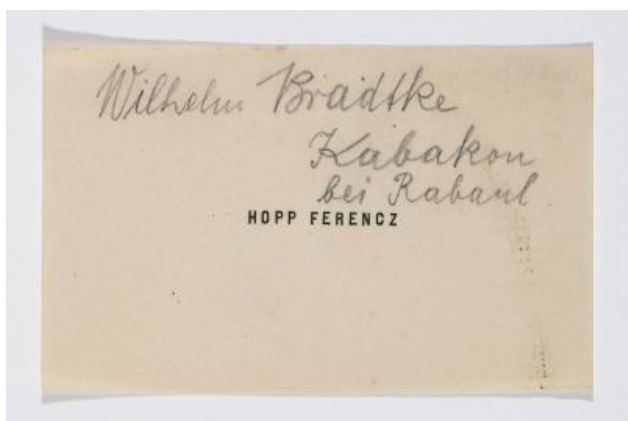 Wilhelm Bradtke
Kabakon
bei Rabaul
HOPP FERENCZ